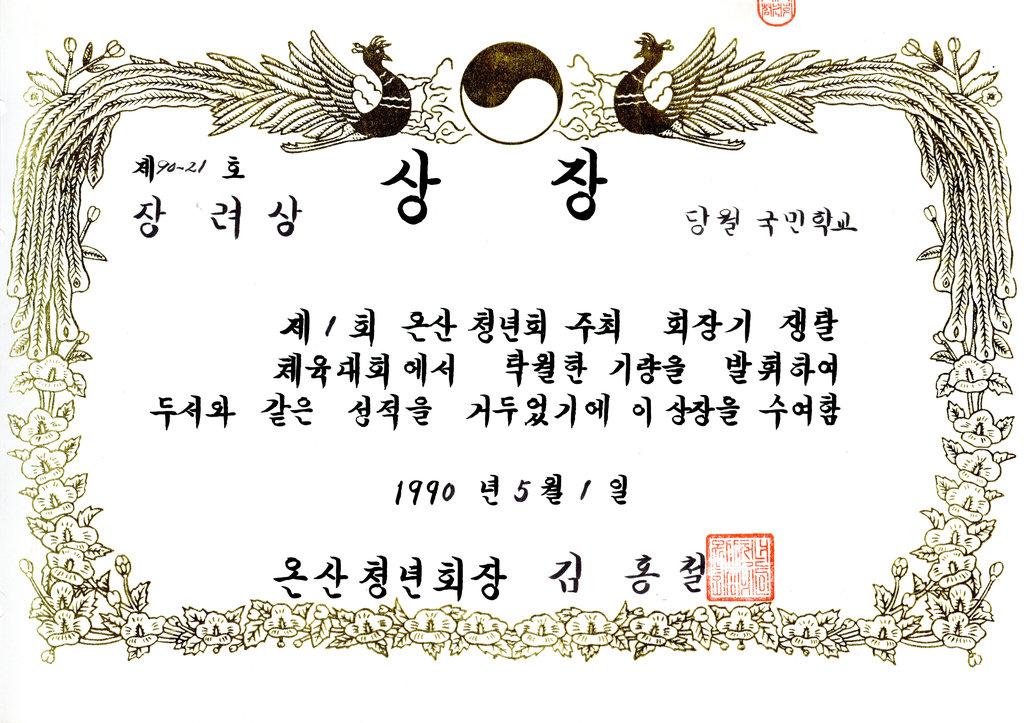 제90-21 호
상 장
장 려 상
당월 국민학교
제 1 회 온산 청년회 주최 회장기 쟁탈
체육대회에서 탁월한 기량을 발휘하여
두서와 같은 성적을 거두었기에 이 상장을 수여함
1990 년 5 월 1 일
온산청년회장 김 홍 철